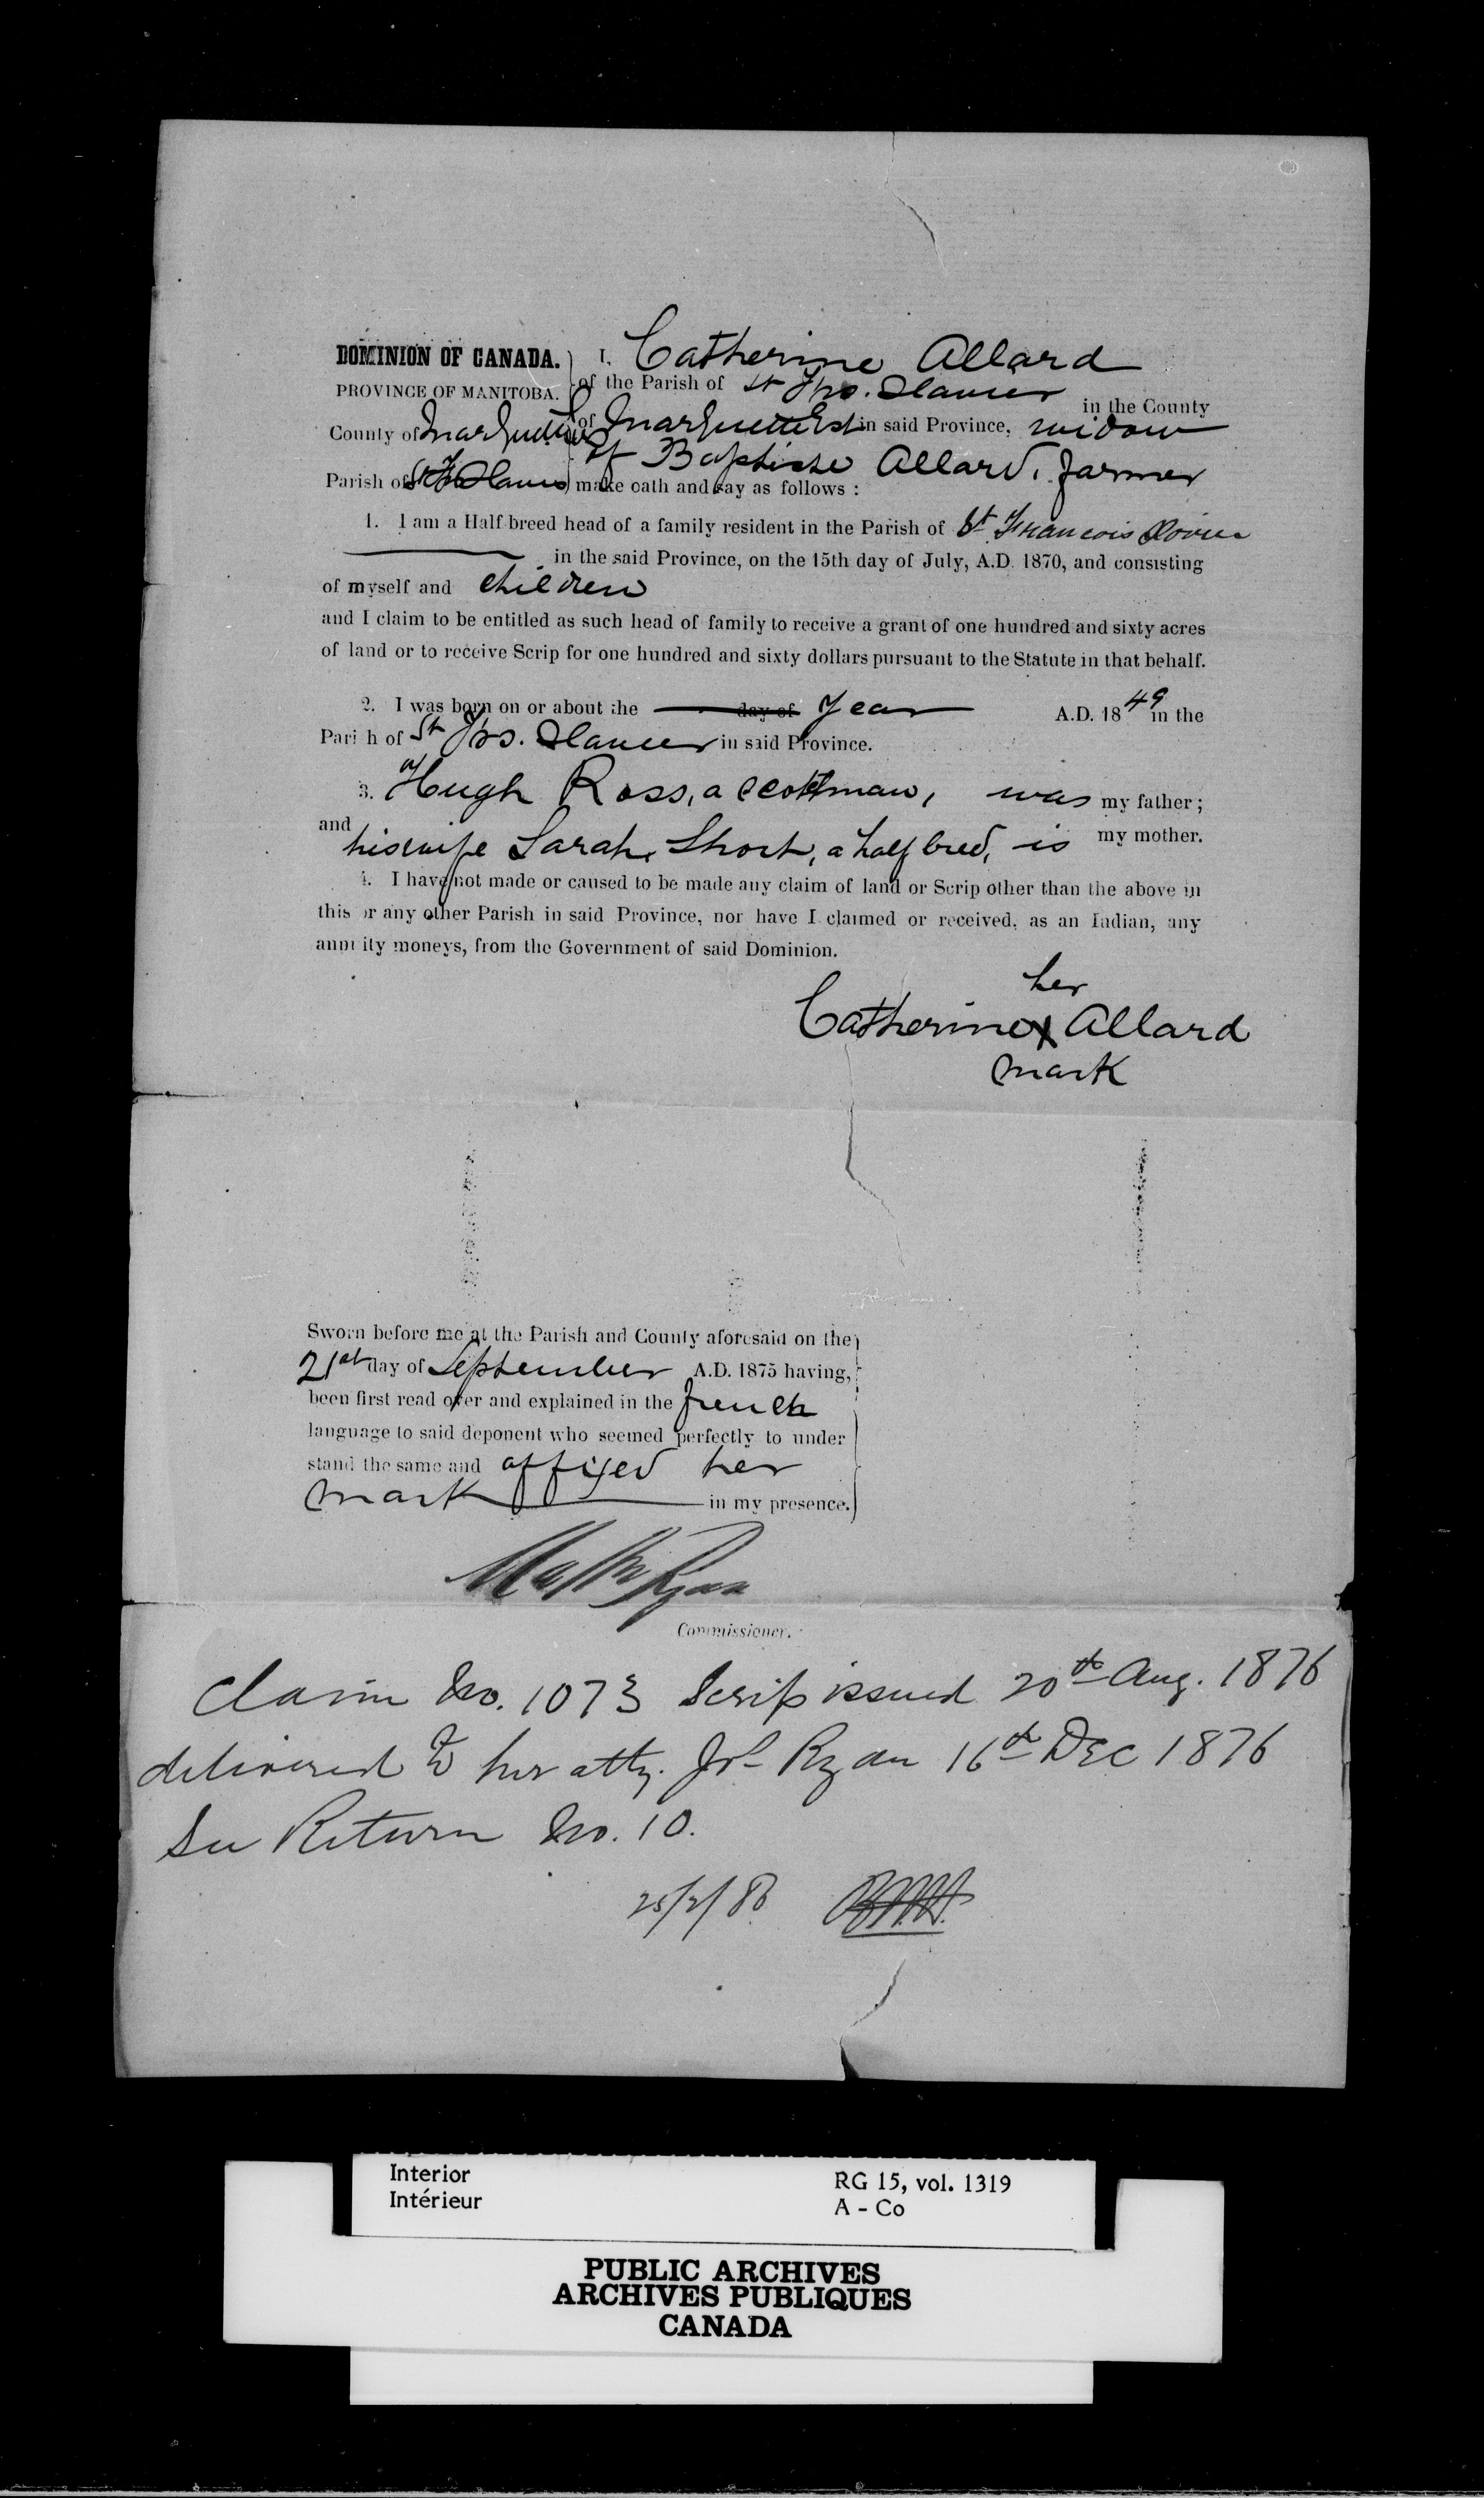 DOMINION OF CANADA.
PROVINCE OF MANITOBA.
County of Marquette
Parish of St F. Xavier
I, Catherine Allard
of the Parish of St Frs. Xavier in the County
of Marquette Est in said Province, widow
of Baptiste Allard, farmer
make oath and say as follows :
1. I am a Half-breed head of a family resident in the Parish of St Francois Xavier
in the said Province, on the 15th day of July, A.D. 1870, and consisting
of myself and children
and I claim to be entitled as such head of family to receive a grant of one hundred and sixty acres
of land or to receive Scrip for one hundred and sixty dollars pursuant to the Statute in that behalf.
2. I was born on or about the day of Year A.D. 1849 in the
Parish of St Frs. Xavier in said Province.
3. Hugh Ross, a Scottman, was my father;
and his wife Sarah Short, a half breed, is my mother.
4. I have not made or caused to be made any claim of land or Scrip other than the above in
this or any other Parish in said Province, nor have I claimed or received, as an Indian, any
annuity moneys, from the Government of said Dominion.
her
Catherine X Allard
mark
Sworn before me at the Parish and County aforesaid on the
21st day of September A.D. 1875 having,
been first read over and explained in the french
language to said deponent who seemed perfectly to under
stand the same and affixed her
mark in my presence.
Matt Ryan
Commissioner.
Claim No. 1073 Scrip issued 20th Aug. 1876
delivered to her atty. Jos Ryan 16th Dec 1876
See Return No. 10.
25/2/86
Interior
Intérieur
RG 15, vol. 1319
A - Co
PUBLIC ARCHIVES
ARCHIVES PUBLIQUES
CANADA